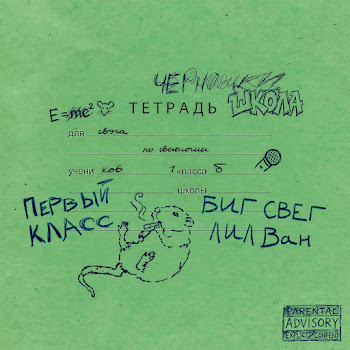 ЧЕРНОВИКИ
E=mc² ТЕТРАДЬ ШКОЛА
для свэга
по свегологии
учени ков 1 класса б
школы
ПЕРВЫЙ КЛАСС
БИГ СВЕГ
ЛИЛ Ван
PARENTAL
ADVISORY
EXPLICIT CONTENT